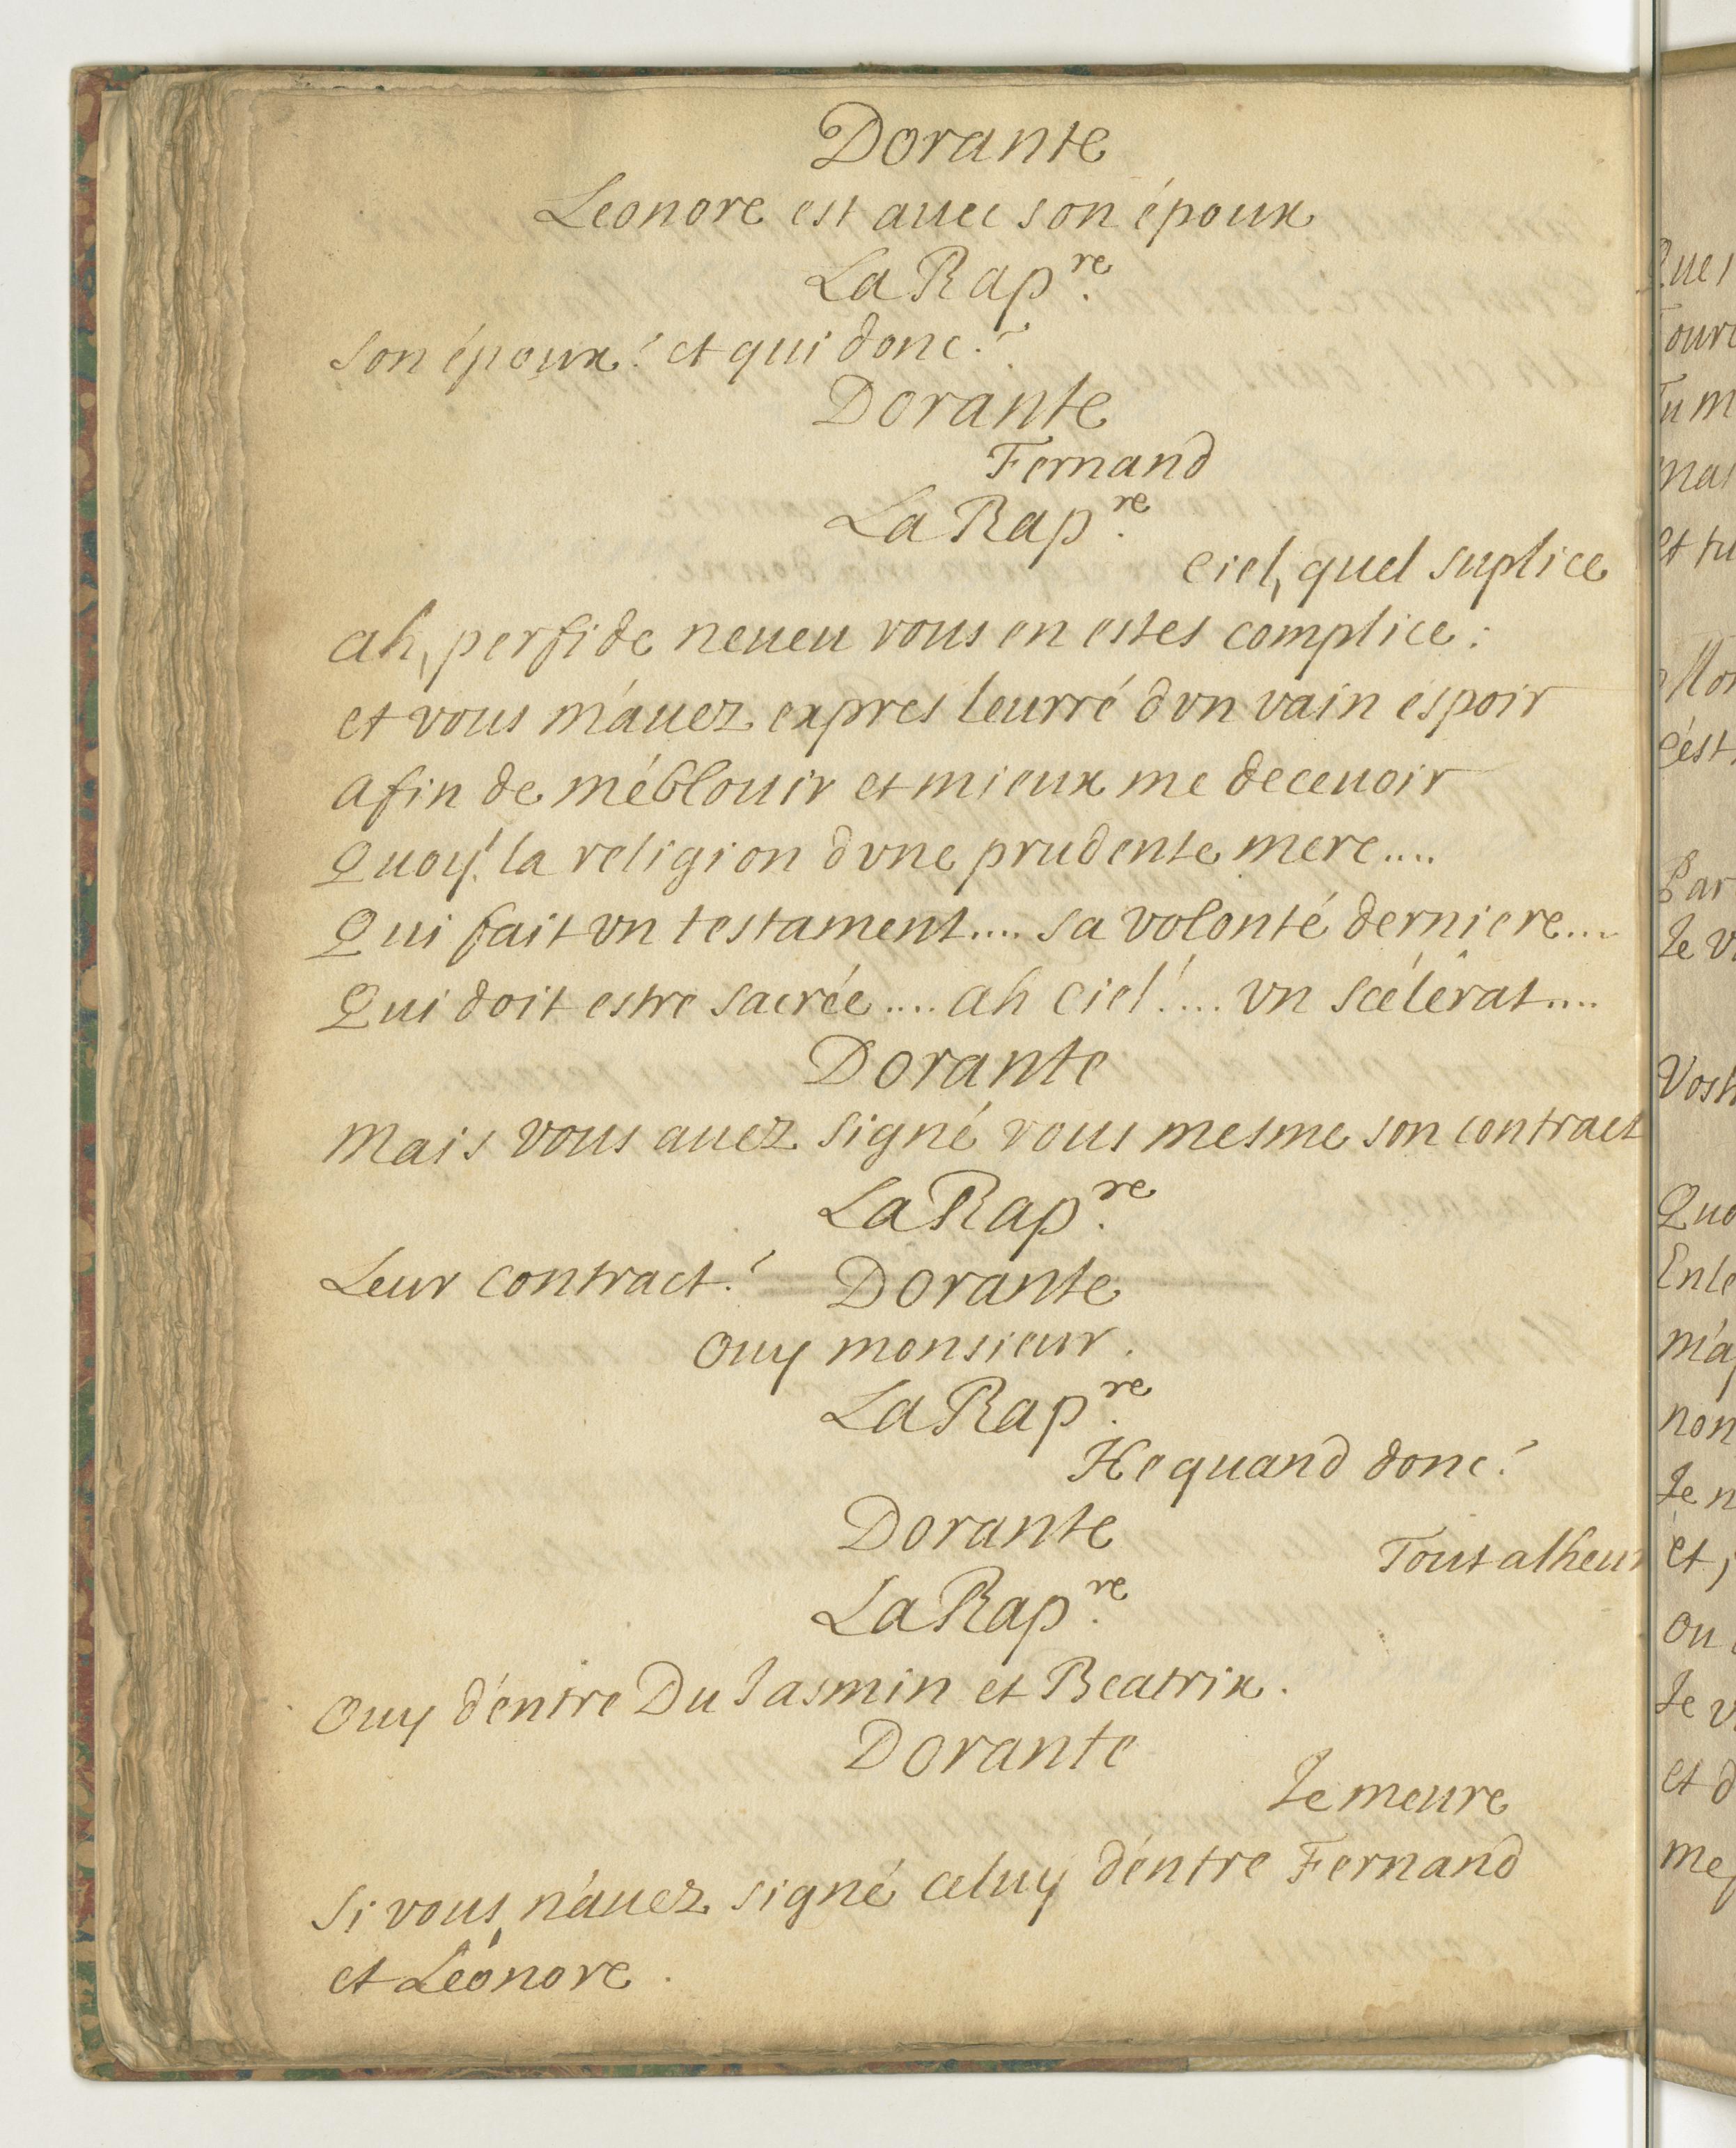 Dorante
Leonore est auec son époux
La Rap.re
son époux? et qui donc?
Dorante
Fernand
La Rap.re
Ciel, quel suplice
ah, perfide neueu vous en estes complice:
et vous m'auez expres leurré dvn vain espoir
afin de m'éblouir et mieux me deceuoir
Quoy! la religion dvne prudente mere....
Qui fait vn testament.... sa volonté derniere....
Qui doit estre sacrée.... ah Ciel!.... vn scélérat....
Dorante
Mais vous auez signé vous mesme son contract
La Rap.re
Leur contract?
Dorante
Ouy monsieur.
La Rap.re
He quand donc?
Dorante
Tout alheur
La Rap.re
Ouy d'entre Du Jasmin et Beatrix.
Dorante
Je meure
Si vous n'auez signé celuy d'entre Fernand
et Léonore.